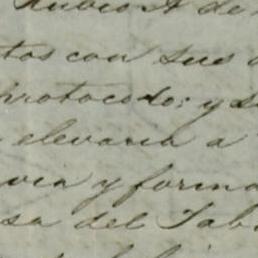 de
tos con sus
protocolo; y s
elevaria a
via y forma
sa del Tab